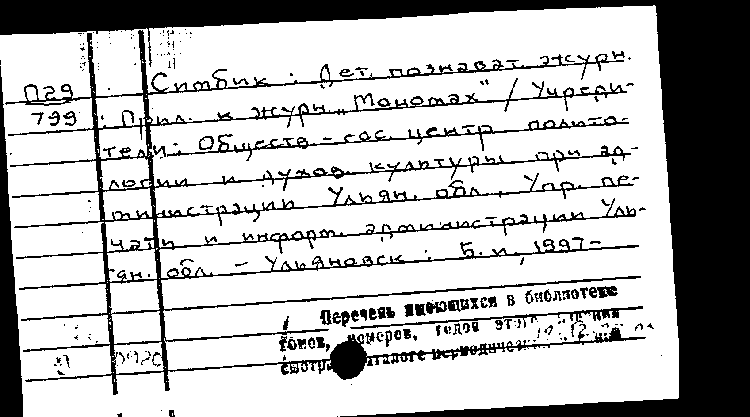 П29
799
Симбик : Дет. познават. журн.
: Прил. к журн. "Мономах" / Учреди-
тели: Обществ.-гос. центр полито-
логии и духов. культуры при ад-
министрации Ульян. обл., Упр. пе-
чати и информ. администрации Уль-
ян. обл. - Ульяновск : Б. и., 1997-
Перечень имеющихся в библиотеке
томов, номеров, годов этого
смотри каталоге